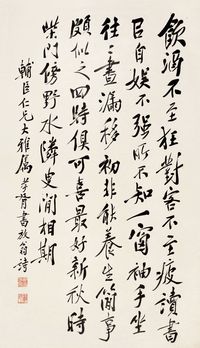 飲酒不至狂對客不至疲讀書
以自娛不強所不知一窗袖手坐
往〻晝漏移初非能養生簡事
頗似之四時俱可喜最好新秋時
柴門傍野水隣叟閒相期
輔臣仁兄大雅屬 書放翁詩